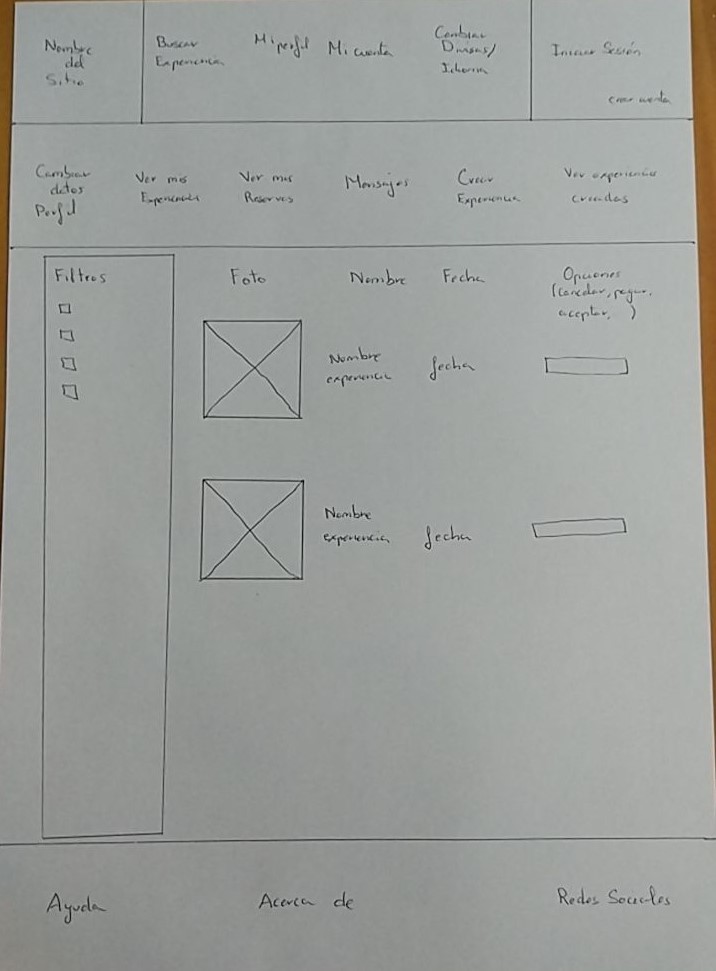 Nombre
del
Sitio
Buscar
Experiencia
Mi perfil
Mi cuenta
Cambiar
Divisas/
Idioma
Iniciar Sesión
crear cuenta
Cambiar
datos
Perfil
Ver mis
Experiencias
Ver mis
Reservas
Mensajes
Crear
Experiencia
Ver experiencias
creadas
Filtros
Foto
Nombre
Fecha
Opciones
(cancelar, pagar,
aceptar, )
Nombre
experiencia
fecha
Nombre
experiencia
fecha
Ayuda
Acerca de
Redes Sociales